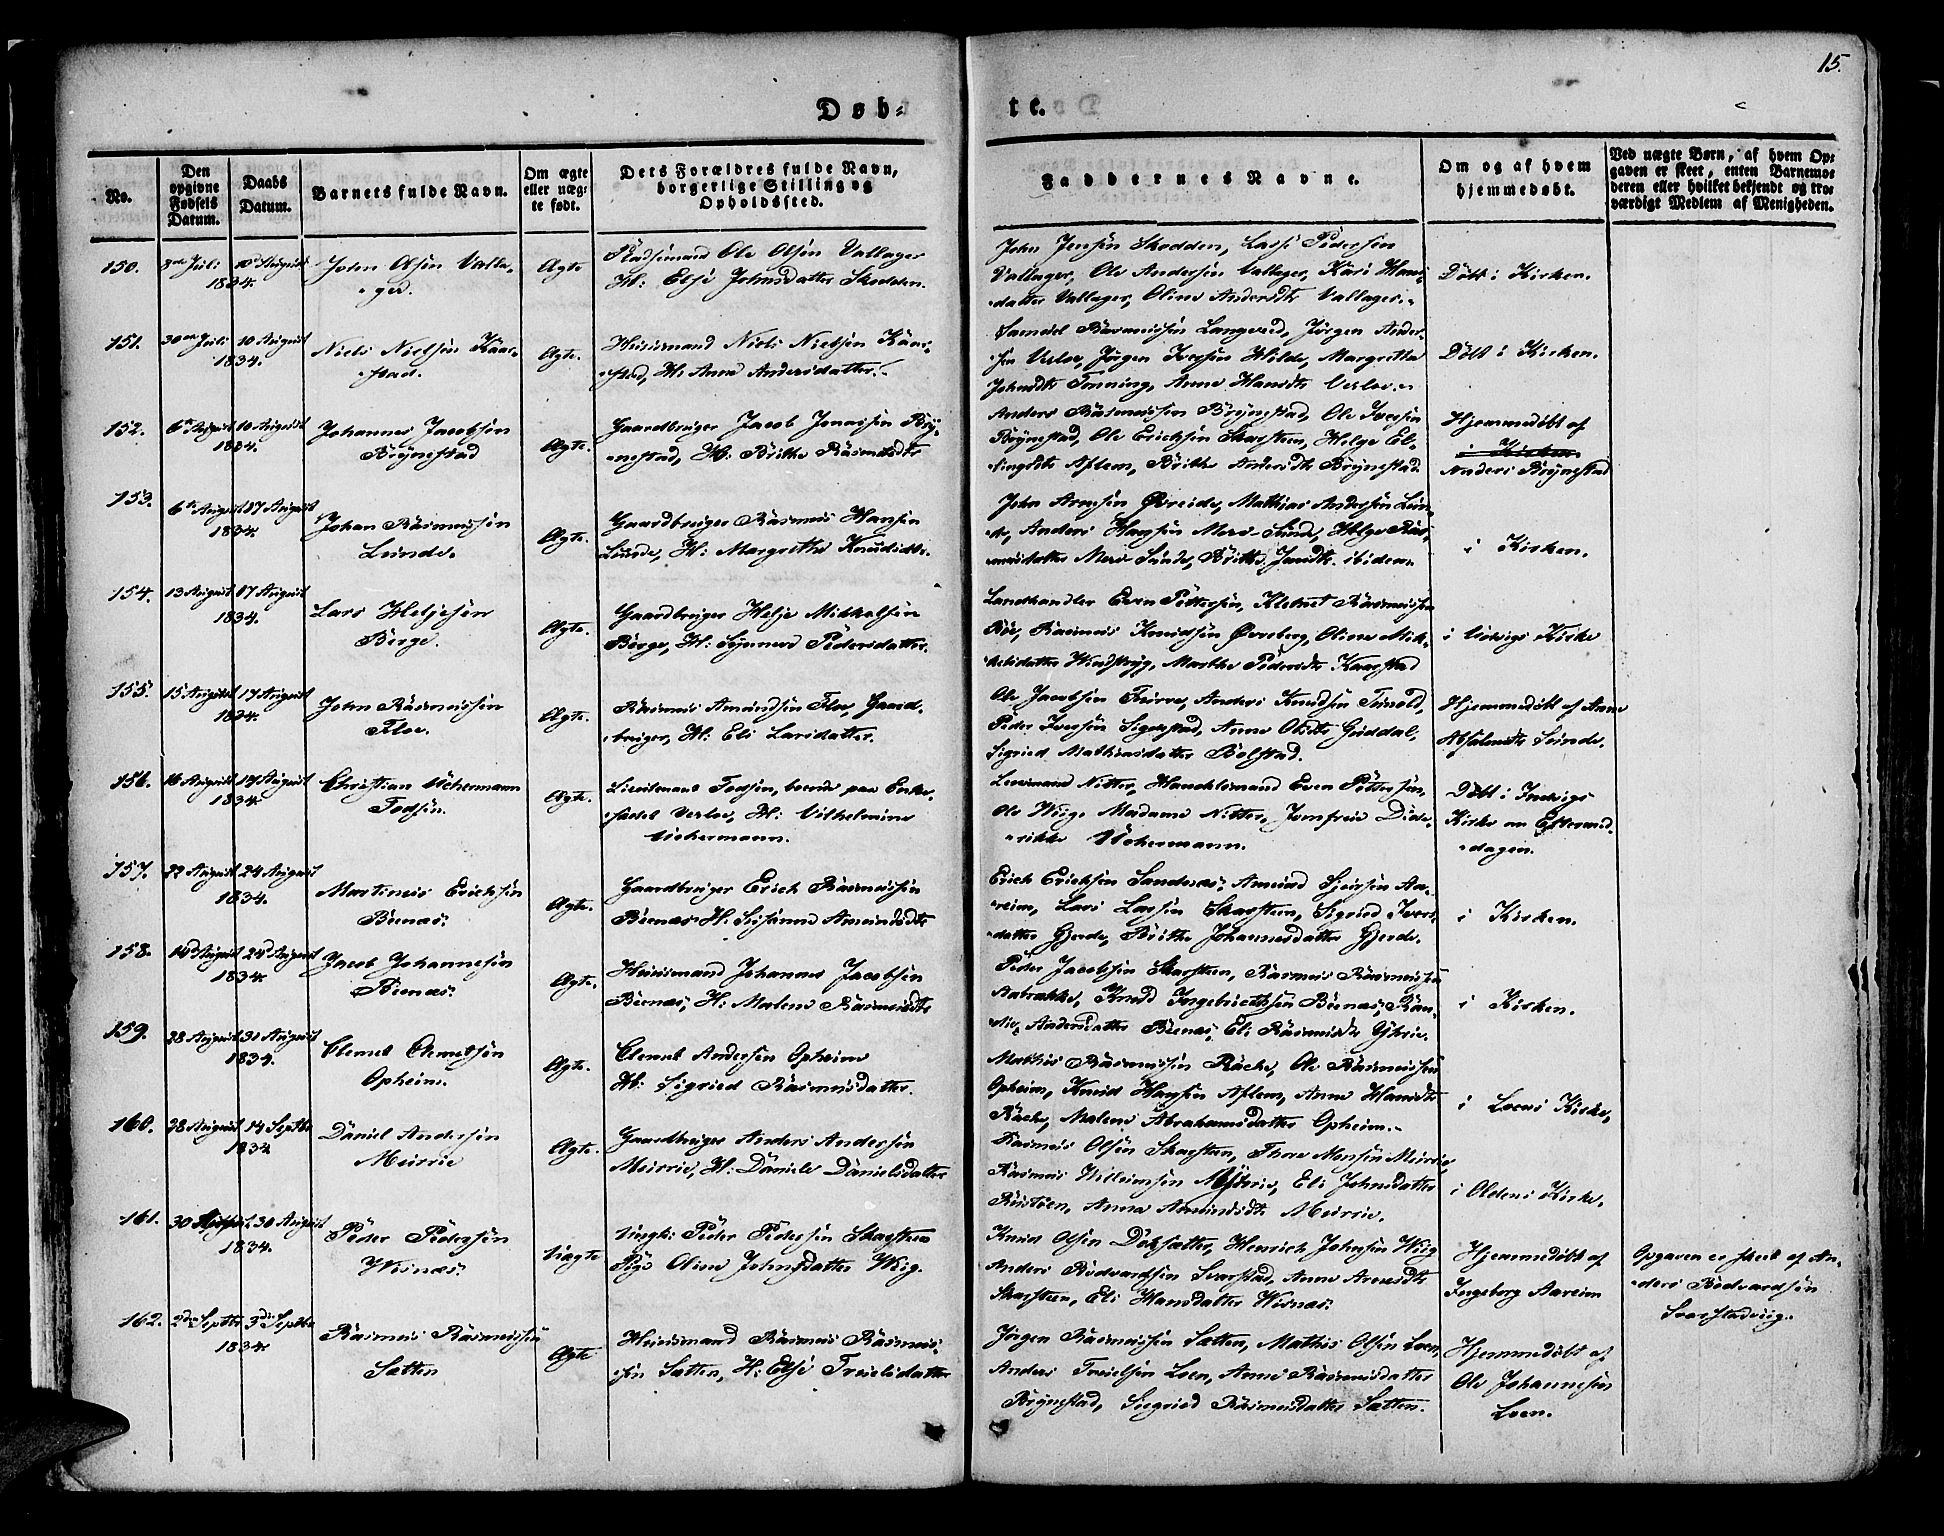 15.
Døb-
te.
No.
Den
opgivne
Fødsels
Datum.
Daabs
Datum.
Barnets fulde Navn.
Om ægte
eller uæg-
te født.
Dets Forældres fulde Navn,
borgerlige Stilling og
Opholdssted.
Faddernes Navne.
Om og af hvem
hjemmedøbt.
Ved uægte Børn, af hvem Op-
gaven er skeet, enten Barnemo-
deren eller hvilket bekjendt og tro-
værdigt Medlem af Menigheden.
150. 8de Juli 10de August
1834.
John Olsen Valla-
ger.
Ægte
Pladsmand Ole Olsen Vallager
H: Else Johnsdatter Skodden.
John Jensen Skodden, Lars Pedersen
Vallager, Ole Andersen Vallager, Kari Hans-
datter Vallager, Oline Andersdtr Vallager.
Døbt i Kirken.
151. 30te Juli 10 August
1834.
Niels Nielsen Kaar-
stad.
Ægte.
Huusmand Niels Nielsen Kaar-
stad, H: Anne Andersdatter.
Samuel Rasmussen Langesed, Jørgen Ander-
sen Verloe, Jørgen Iversen Hilde, Margrethe
Johnsdtr Tonning, Anne Hansdtr Verloe.
Døbt i Kirken.
152. 6te August 10 August
1834.
Johannes Jacobsen
Brynestad
Ægte.
Gaardbruger Jacob Jonasen Bry-
nestad, H: Brithe Rasmusdtr
Anders Rasmussen Brynestad, Ole Iversen
Brynestad, Ole Ericksen Skarsteen, Helge El-
lingsdtr Aflem, Brithe Andersdtr Brynestad.
Hjemmedøbt af
i Kirken
Anders Brynestad
153. 6te August 17 August
1834.
Johan Rasmussen
Lunde.
Ægte.
Gaardbruger Rasmus Hansen
Lunde, H: Margrethe Knudsdtr.
John Arnesen Øvreide, Mathias Andersen Lun-
de, Anders Hansen Mere-Sunde, Helge Ras-
musdatter Mere Sunde, Brithe Jonsdtr. ibidem.
i Kirken.
154. 13 August 17 August
1834.
Lars Heljesen
Berge.
Ægte.
Gaardbruger Helje Mikkelsen
Berge, H: Synneve Pedersdatter.
Landhandler Even Pettersen, Klemet Rasmussen
Bøe, Rasmus Knudsen Øvreberg, Oline Mik-
kelsdatter Windsryg, Marthe Pedersdtr Kaarstad
i Utvigs Kirke
155. 15 August 17 August
1834.
John Rasmussen
Floe.
Ægte.
Rasmus Amundsen Floe, Gaard-
bruger, H: Eli Larsdatter.
Ole Jacobsen Furre, Anders Knudsen Svold,
Peder Iversen Sigerstad, Anne Olsdtr Griddal,
Sigried Mathiasdatter Bolstad.
Hjemmedøbt af Anne
Absalonsdtr Sunde.
156. 16 August 17 August
1834.
Christian Uchermann
Todsen.
Ægte.
Lieutenant Todsen, boende paa Enke-
sædet Verloe, H: Vilhelmine
Uchermann.
Lensmand Nitter, Handelsmand Even Pettersen,
Ole Wiig, Madame Nitter, Jomfrue Dide-
rikke Uchermann.
Døbt i Indvigs
Kirke om Eftermid-
dagen.
157. 22 August 24 August
1834.
Martinus Ericksen
Buenæs.
Ægte.
Gaardbruger Erick Rasmussen
Buenæs, H: Susanne Amundsdtr
Erick Ericksen Sandenæs, Amund Sjursen Aa-
reim, Lars Larsen Skarsteen, Sigried Ivers-
datter Gjerde, Brithe Johannesdatter Gjerde.
i Kirken.
158. 14d August 24d August
1834.
Jacob Johannesen
Buenæs.
Ægte.
Huusmand Johannes Jacobsen
Buenæs, H: Malene Rasmusdtr
Peder Jacobsen Skarsteen, Rasmus Rasmussen
Aabrække, Knud Ingebricktsen Buenæs, Ran-
die Andersdatter Buenæs, Eli Rasmusdtr Ytrie.
i Kirken.
159. 28 August 31 August
1834.
Clemet Clemetsen
Opheim.
Ægte.
Clemet Andersen Opheim
H: Sigried Rasmusdatter.
Mathis Rasmussen Rache, Ole Rasmussen
Opheim, Knud Hansen Aflem, Anne Hansdtr
Rache, Malene Abrahamsdatter Opheim.
i Loens Kirke.
160. 28 August 14 Septbr
1834
Daniel Andersen
Muurie
Ægte.
Gaardbruger Anders Andersen
Muurie, H: Daniele Danielsdatter
Rasmus Olsen Skarsteen, Thore Monsen Muurie,
Rasmus Willumsen Myhrie, Eli Johnsdatter
Rustøen, Anna Amundsdtr Muurie.
i Oldens Kirke.
161. 30 August 30 August
1834.
Peder Pedersen
Wisnæs.
Uægte
Ungk: Peder Pedersen Skarsteen
Pige Oline Johnsdatter Wiig.
Knud Olsen Doksætter, Henrick Johnsen Wiig
Anders Bodvardsen Svarstad, Anne Arnesdtr
Skarsteen, Eli Hansdatter Wisnæs.
Hjemmedøbt af
Ingeborg Aareim
Opgaven er skeet af An-
ders Bodvardsen
Svarstadviig.
162. 2den Septbr 3die Septbr
1834.
Rasmus Rasmussen
Sætten
Ægte
Huusmand Rasmus Rasmus-
sen Sætten, H: Else Truelsdatter
Jørgen Rasmussen Sætten, Mathis Olsen Loen,
Anders Truelsen Loen, Anne Rasmusdatter
Brynestad, Siegried Rasmusdatter Sætten.
Hjemmedøbt af
Ole Johannesen
Loen.